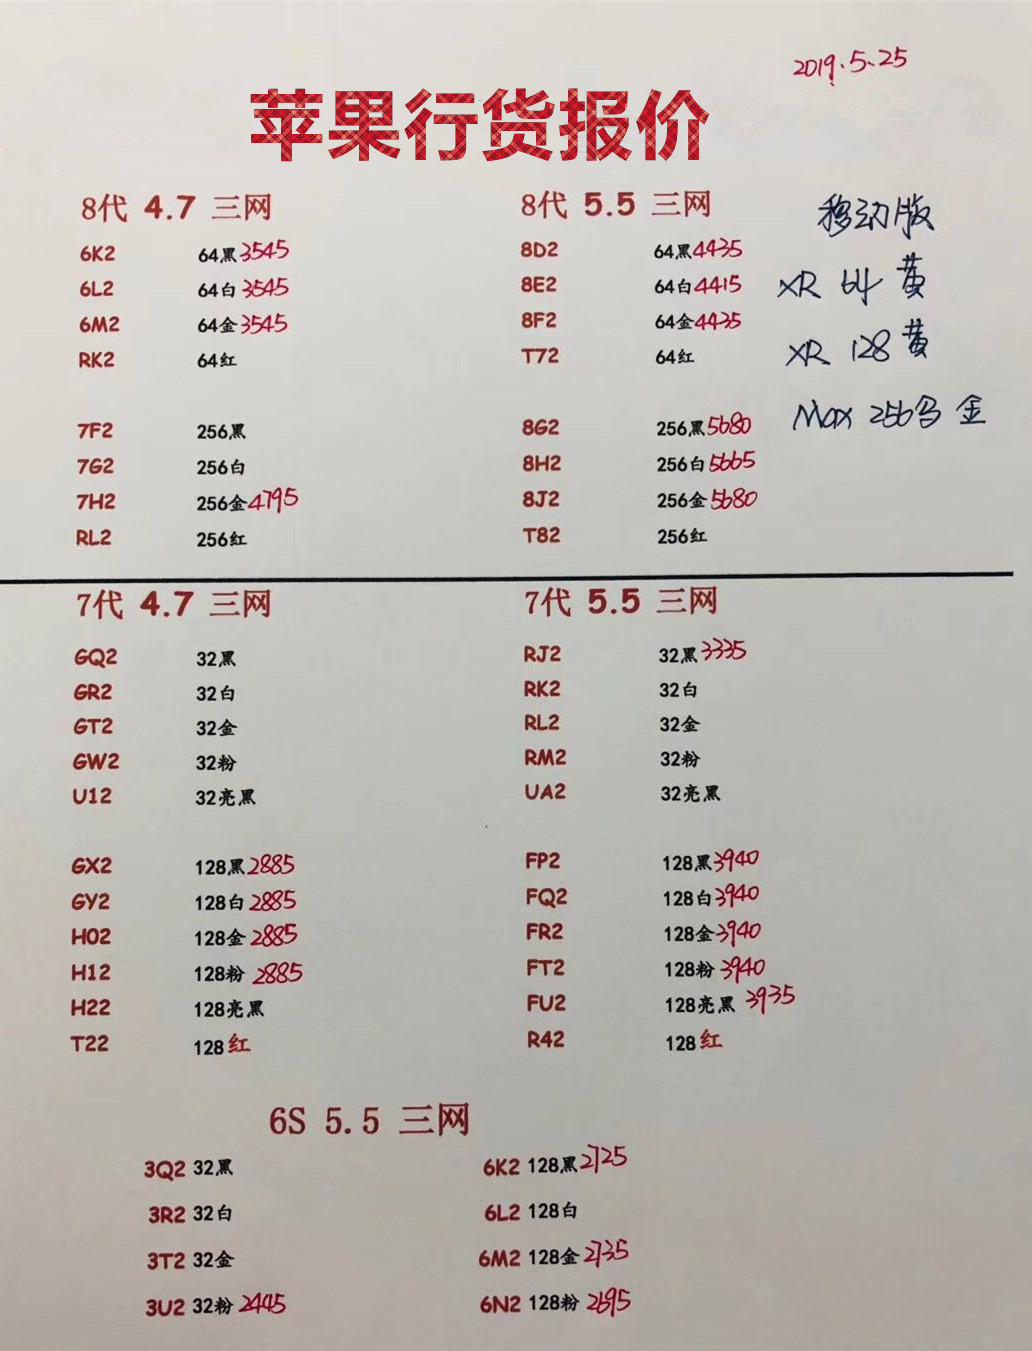 2019.5.25
苹果行货报价
8代 4.7 三网
6K2 64黑 3545
6L2 64白 3545
6M2 64金 3545
RK2 64红
7F2 256黑
7G2 256白
7H2 256金 4795
RL2 256红
8代 5.5 三网
8D2 64黑 4435
8E2 64白 4415
8F2 64金 4435
T72 64红
8G2 256黑 5680
8H2 256白 5665
8J2 256金 5680
T82 256红
移动版
XR 64 黄
XR 128 黄
Max 256G 金
7代 4.7 三网
GQ2 32黑
GR2 32白
GT2 32金
GW2 32粉
U12 32亮黑
GX2 128黑 2885
GY2 128白 2885
H02 128金 2885
H12 128粉 2885
H22 128亮黑
T22 128红
7代 5.5 三网
RJ2 32黑 3335
RK2 32白
RL2 32金
RM2 32粉
UA2 32亮黑
FP2 128黑 3940
FQ2 128白 3940
FR2 128金 3940
FT2 128粉 3940
FU2 128亮黑 3935
R42 128红
6S 5.5 三网
3Q2 32黑
3R2 32白
3T2 32金
3U2 32粉 2445
6K2 128黑 2725
6L2 128白
6M2 128金 2735
6N2 128粉 2695